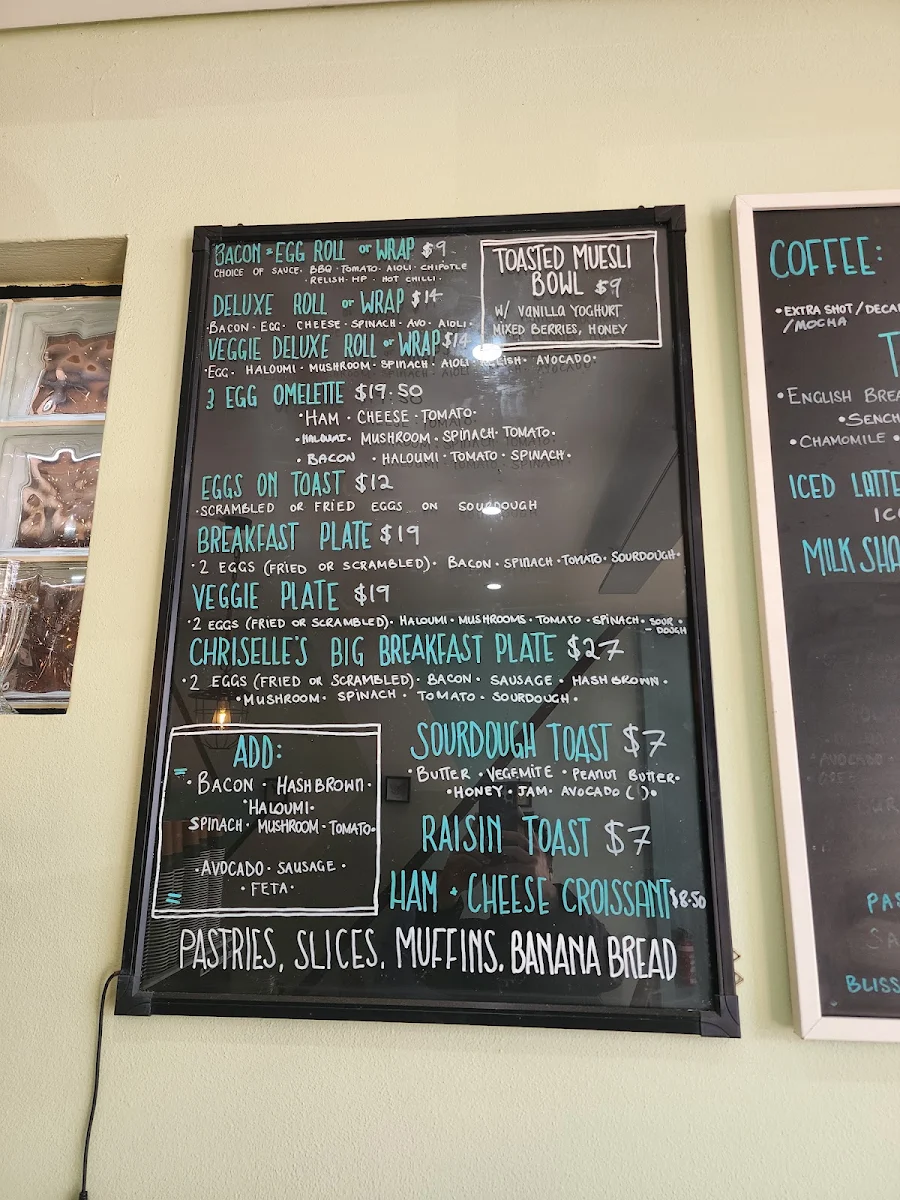 BACON + EGG ROLL or WRAP $9
CHOICE OF SAUCE· BBQ · TOMATO· AIOLI · CHIPOTLE
· RELISH· HP · HOT CHILLI ·
DELUXE ROLL or WRAP $14
·BACON · EGG · CHEESE · SPINACH · AVO · AIOLI·
VEGGIE DELUXE ROLL or WRAP $14
·EGG· HALOUMI · MUSHROOM · SPINACH · AIOLI · RELISH · AVOCADO·
TOASTED MUESLI
BOWL $9
W/ VANILLA YOGHURT
MIXED BERRIES, HONEY
3 EGG OMELETTE $19.50
·HAM · CHEESE · TOMATO·
·HALOUMI· MUSHROOM · SPINACH · TOMATO·
· BACON · HALOUMI · TOMATO · SPINACH·
EGGS ON TOAST $12
·SCRAMBLED OR FRIED EGGS ON SOURDOUGH
BREAKFAST PLATE $19
·2 EGGS (FRIED OR SCRAMBLED)· BACON · SPINACH · TOMATO· SOURDOUGH·
VEGGIE PLATE $19
·2 EGGS (FRIED OR SCRAMBLED)· HALOUMI · MUSHROOMS · TOMATO · SPINACH · SOUR
- DOUGH
CHRISELLE'S BIG BREAKFAST PLATE $27
·2 EGGS (FRIED OR SCRAMBLED)· BACON · SAUSAGE · HASH BROWN ·
·MUSHROOM · SPINACH · TOMATO · SOURDOUGH ·
ADD:
· BACON · HASHBROWN ·
·HALOUMI·
SPINACH · MUSHROOM · TOMATO·
·AVOCADO · SAUSAGE ·
· FETA·
SOURDOUGH TOAST $7
·BUTTER · VEGEMITE · PEANUT BUTTER·
·HONEY · JAM· AVOCADO ( )·
RAISIN TOAST $7
HAM + CHEESE CROISSANT $8.50
PASTRIES, SLICES, MUFFINS, BANANA BREAD
COFFEE:
·EXTRA SHOT/DECA
/MOCHA
T
·ENGLISH BREA
·SENCH
·CHAMOMILE ·
ICED LATTE
ICE
MILK SHA
AVOCADO
PAS
SA
BLISS